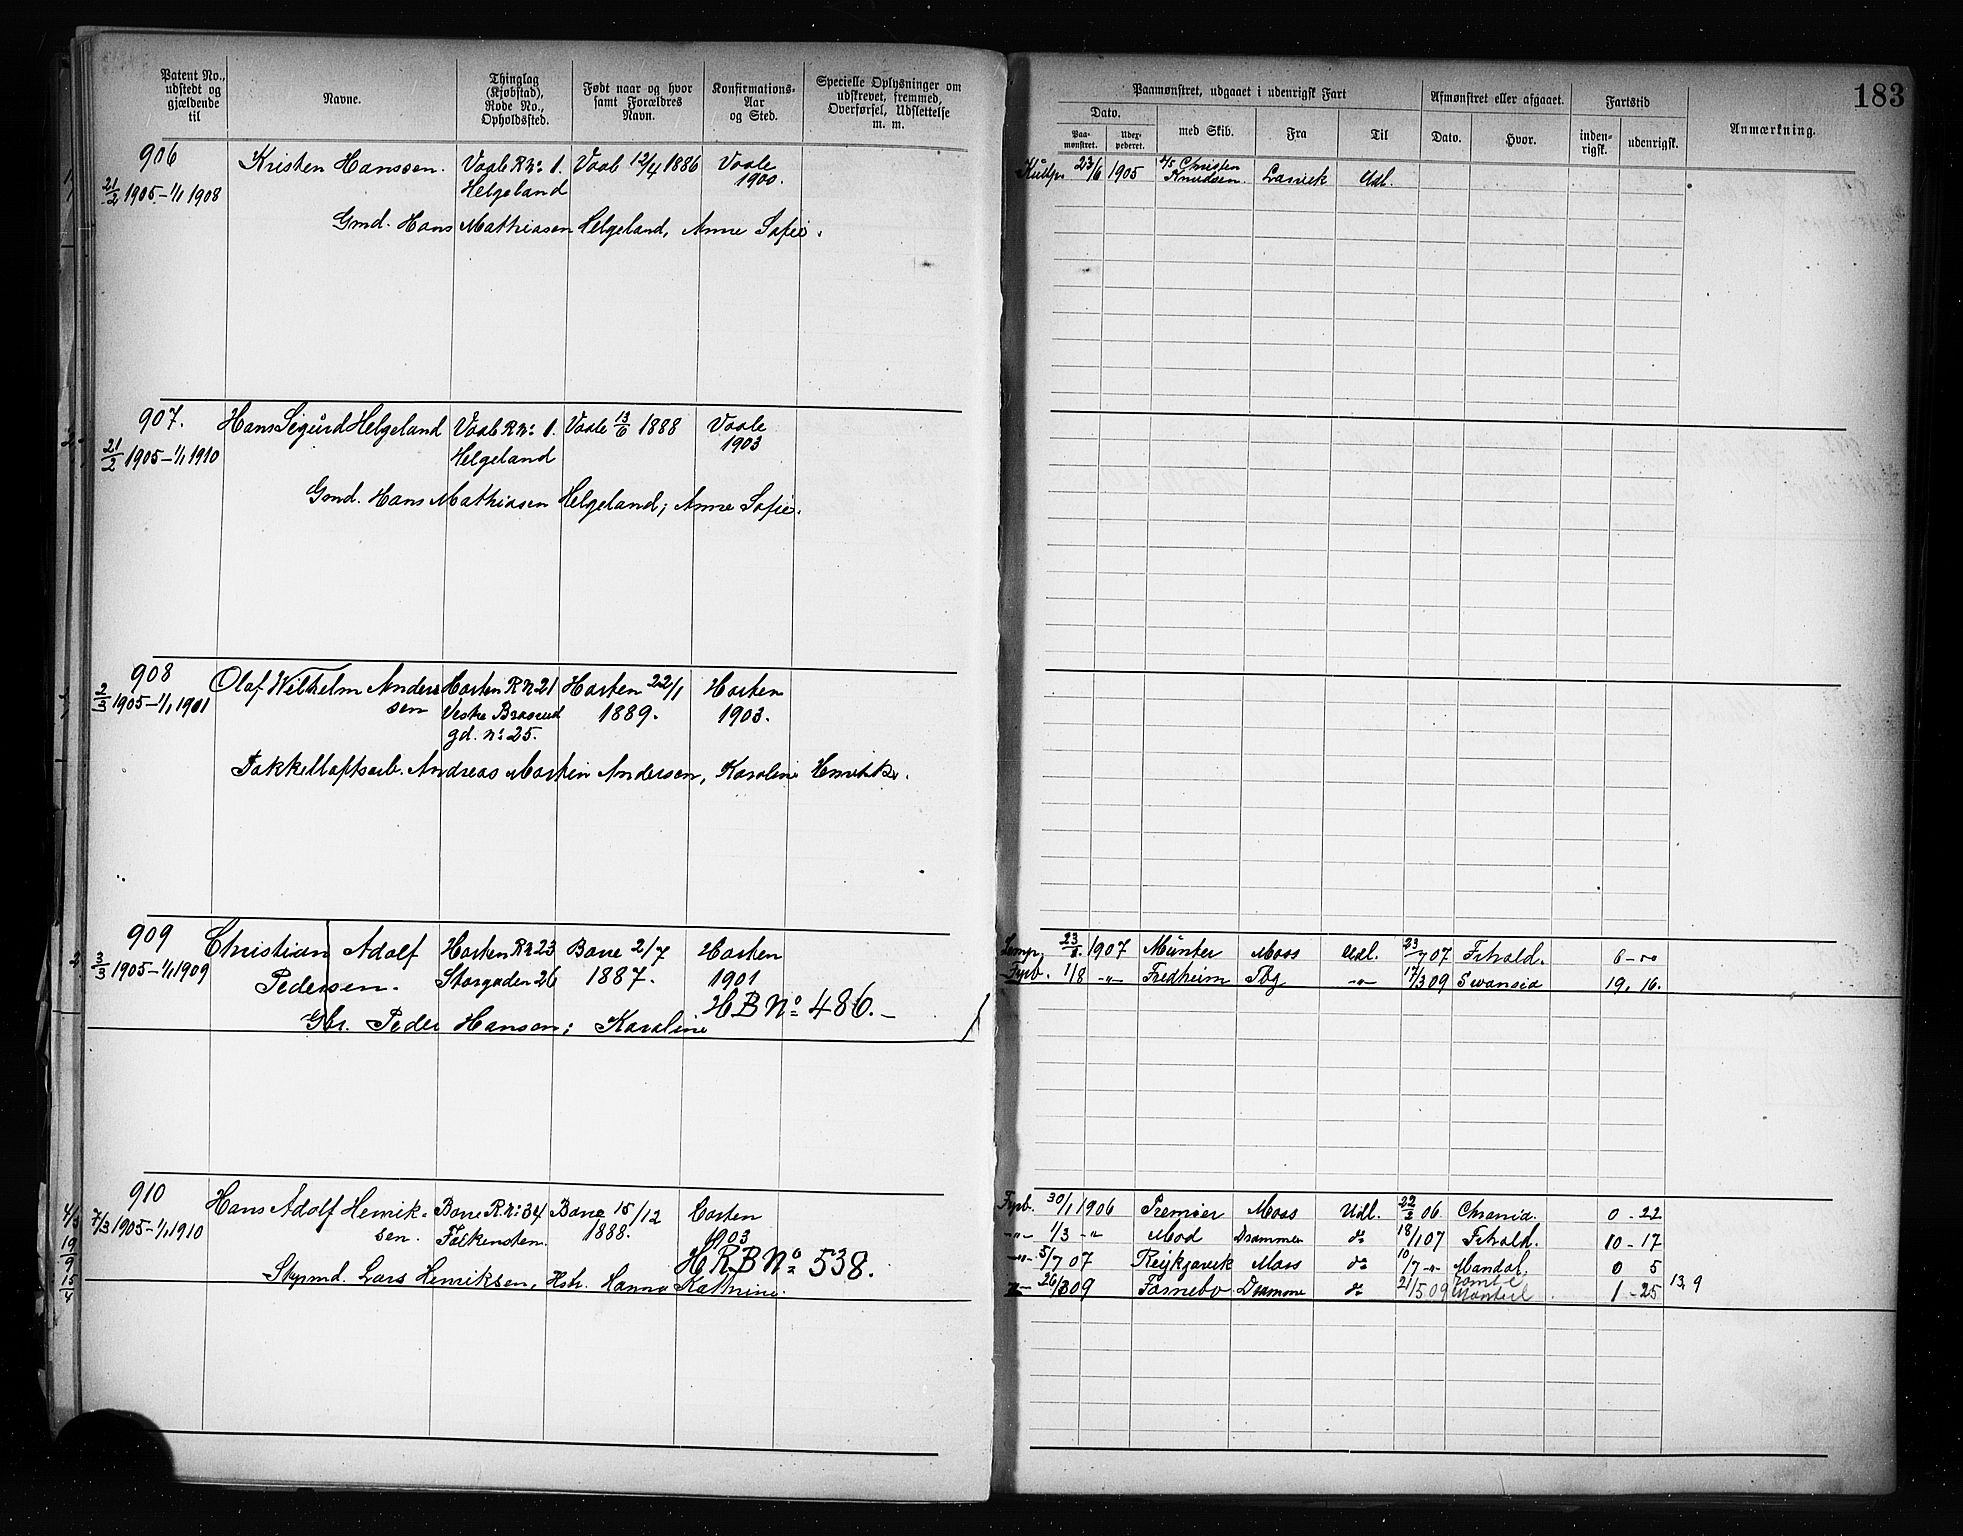 183
Patent No., udstedt og gjældende til
Navne.
Thinglag (Kjøbstad), Rode No., Opholdssted.
Født naar og hvor samt Forældres Navn.
Konfirmations-Aar og Sted.
Specielle Oplysninger om udskrevet, fremmed, Overførsel, Udslettelse m. m.
Paamønstret, udgaaet i udenrigsk Fart
Afmønstret eller afgaaet.
Fartstid
Anmærkning.
Dato.
Paa-mønstret.
med Skib.
Fra
Til
Dato.
Hvor.
inden-rigsk.
udenrigsk.
906
Kristen Hanssen. Vaale R nº 1. Vaale 12/4 1886 Vaale
21/2 1905 - 1/1 1908 Helgeland 1900.
Gmd. Hans Mathiasen Helgeland, Anne Sofie.
23/6 1905 Christen Knudsen Larvik Udl.
907.
Hans Sigurd Helgeland Vaale R nº 1. Vaale 13/6 1888 Vaale
21/2 1905 - 1/1 1910 Helgeland 1903
Gmd. Hans Mathiasen Helgeland; Anne Sofie.
908
Olaf Wilhelm Ander Horten R n 21 Horten 22/1 Horten
2/3 1905 - 1/1 1901 sen Vestre 1889. 1903.
gd. nº 25.
Andreas Martin Andersen, Karoline
909
Christian Adolf Horten R n 23 Borre 2/7 Horten
3/3 1905 - 1/1 1909 Pedersen. Storgaden 26 1887. 1901
HB Nº 486.-
Peder Hansen; Karoline
23/ 1907 Münter Moss Udl. 23/7 07
Fyrb. 1/8 -"- Fredheim Tbg -"- 17/3 09 Swansea 19, 16.
910
Hans Adolf Henrik- Borre R. nº 34 Borre 15/12 Horten
7/3 1905 - 1/1 1910 sen. Falkensten. 1888. 1903
HRB Nº 538.
Lars Henriksen, Hstr. Hanna Kathrine.
4/3
19/9
15/4
Fyrb. 30/1 1906 Premier Moss Udl. 22/2 06 Chrania. 0 - 22
-"- 1/3 -"- Mod Drammen do 18/1 07 10 - 17
-"- 5/7 07 Reijkjavik Moss do 10/7 -"- Mandal. 0 5
26/3 09 Fornebo do 21/5 09 1 - 25 13, 9